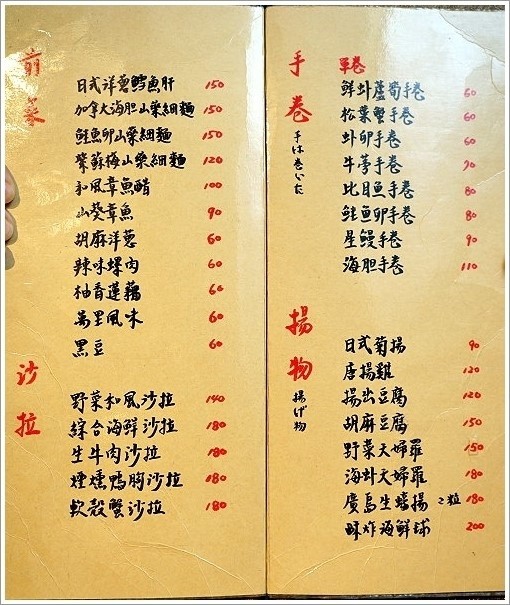 前菜
日式洋蔥鱈魚肝 150
加拿大海胆山藥細麵 150
鮭魚卵山藥細麵 150
紫蘇梅山藥細麵 120
和風章魚醋 100
山葵章魚 90
胡麻洋蔥 60
辣味螺肉 60
柚香蓮藕 60
萬里風味 60
黒豆 60
沙拉
野菜和風沙拉 140
綜合海鮮沙拉 180
生牛肉沙拉 180
煙燻鴨胸沙拉 180
軟殼蟹沙拉 180
手卷
手は巻いた
單卷
鮮虾蘆筍手卷 60
松葉蟹手卷 60
虾卵手卷 60
牛蒡手卷 70
比目魚手卷 80
鮭魚卵手卷 80
星鰻手卷 90
海胆手卷 110
揚物
揚げ物
日式菊揚 90
唐揚雞 120
揚出豆腐 120
胡麻豆腐 150
野菜天婦羅 150
海虾天婦羅 180
廣島生蠔揚 2粒 180
酥炸海鮮球 200